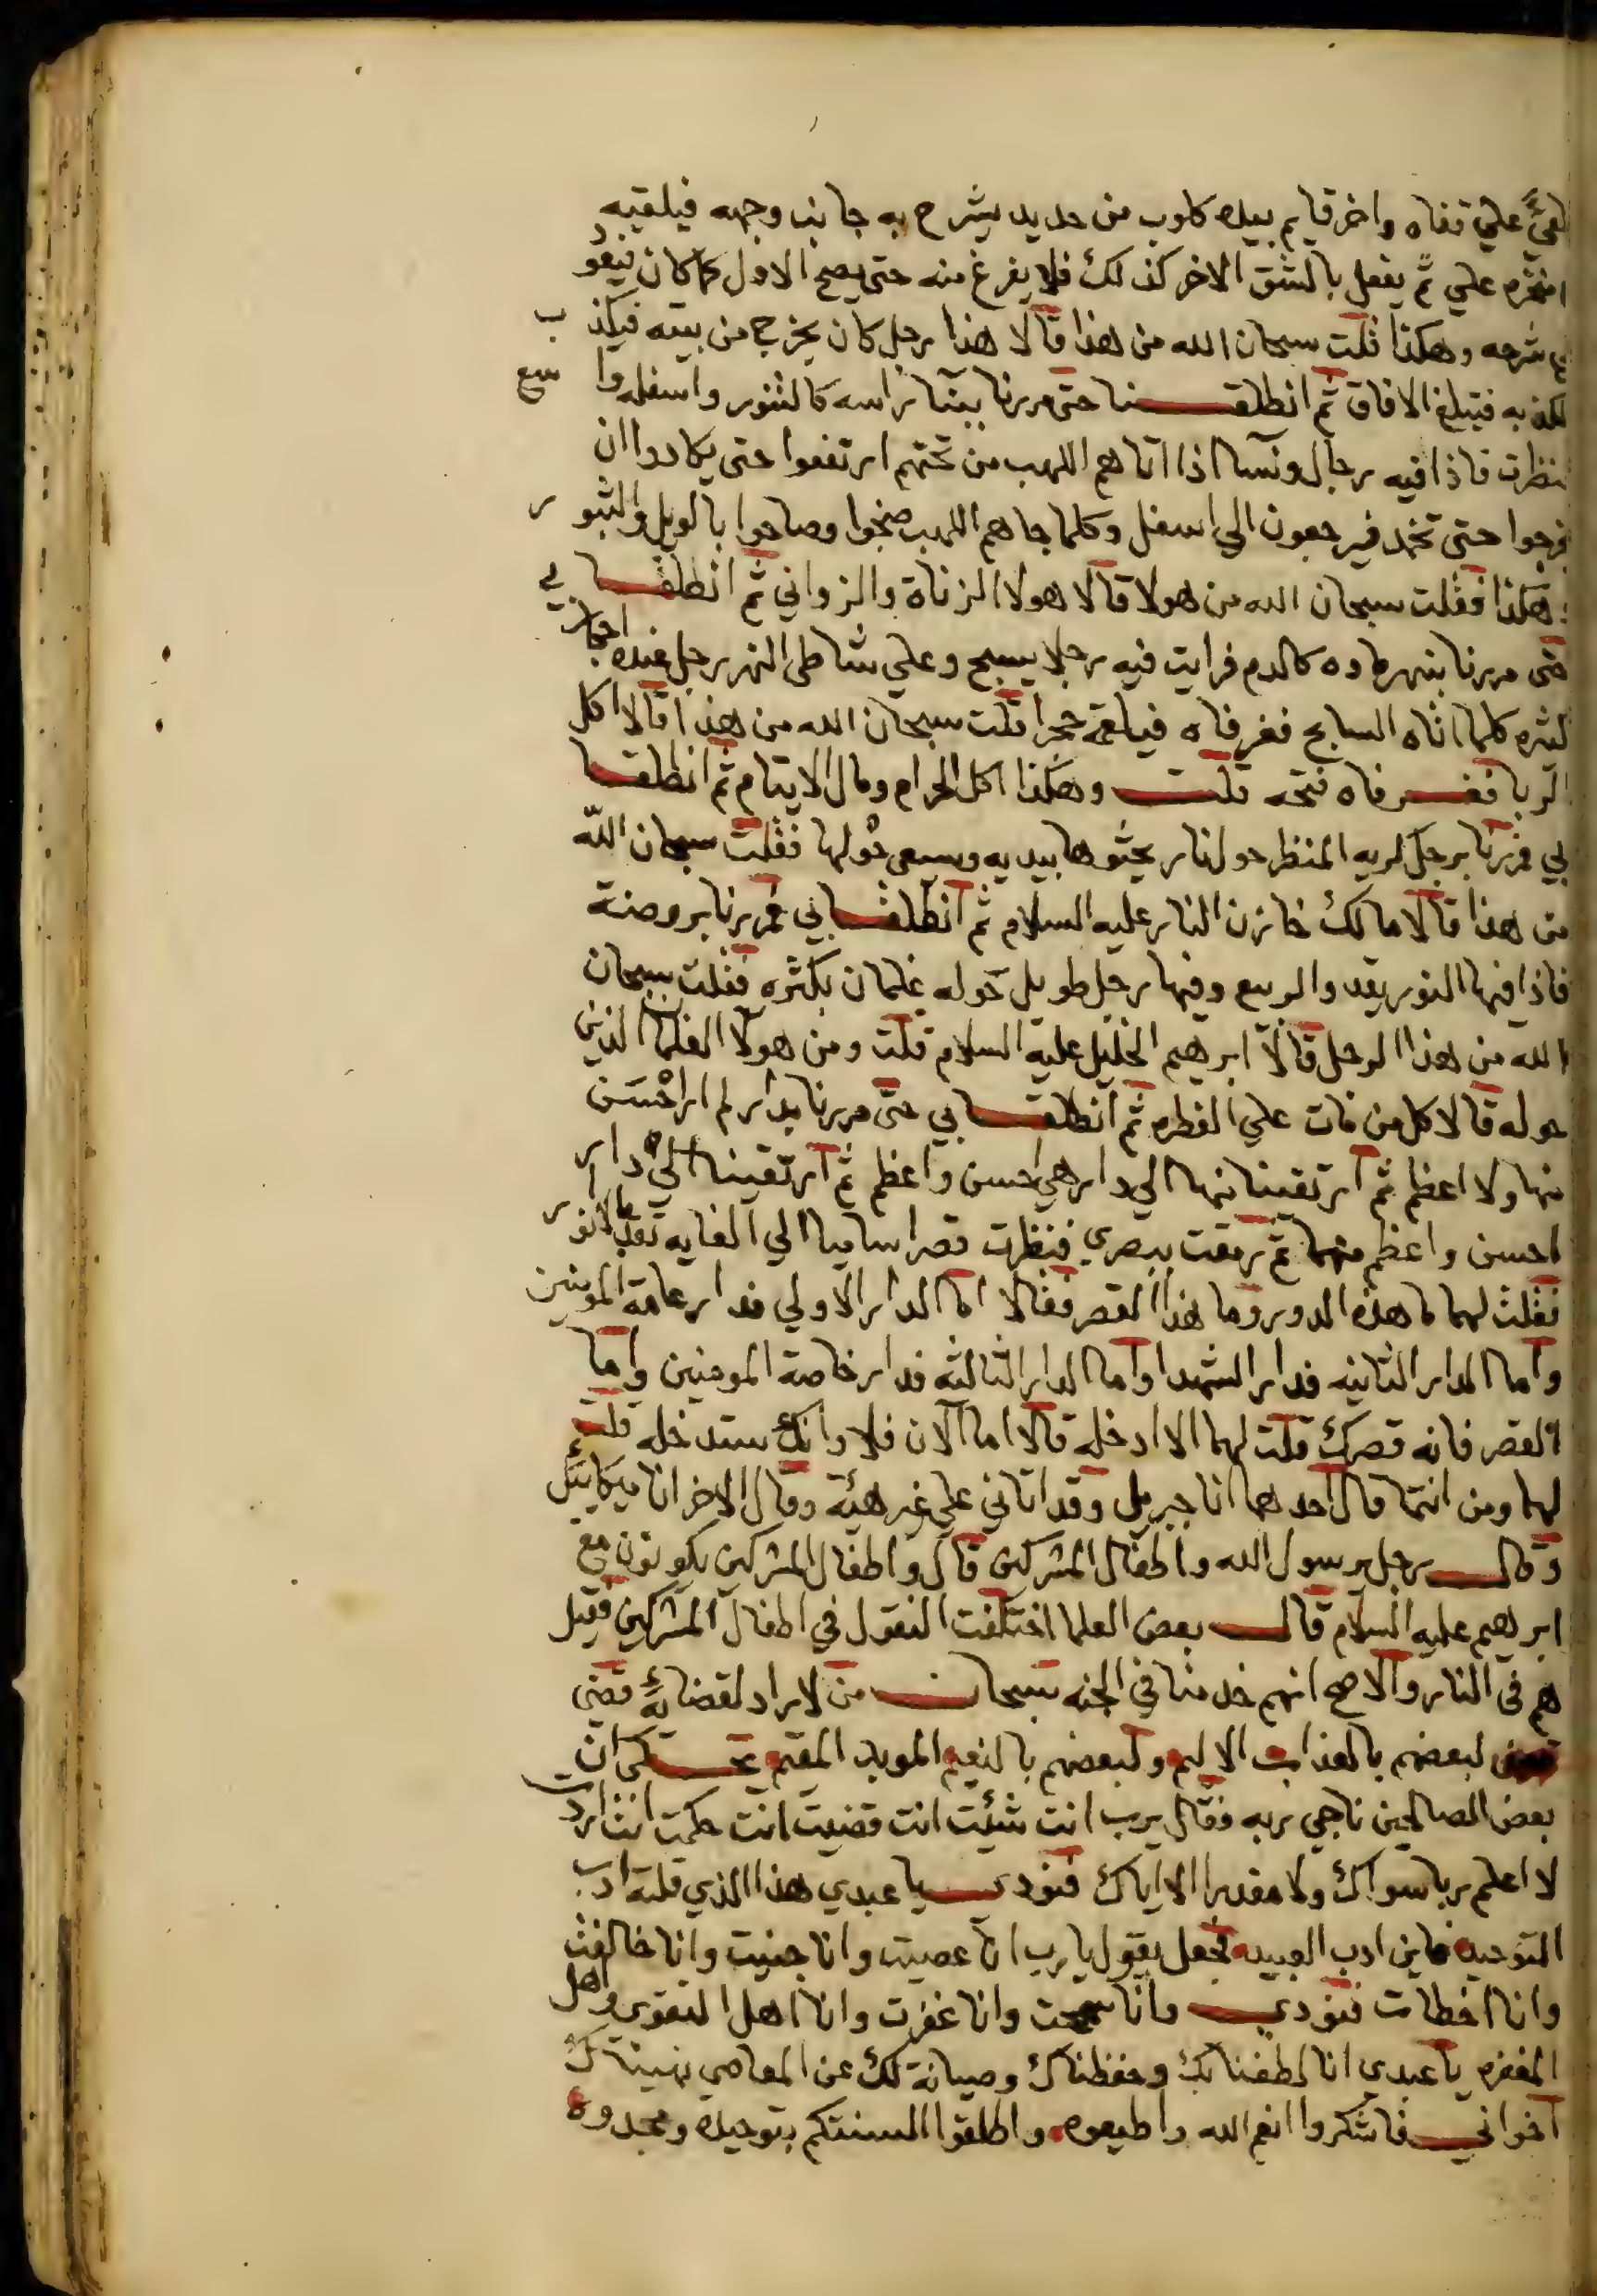 علي قفاه واخر قايم بيده كلوب من حديد يشرح به جانب وجهه فيلقيه
علي ثم يفعل بالشق الاخر كذلك فلا يفرغ منه حتي يصح الاول كما كان فيعو
شرحه وهكذا قلت سبحان الله من هذا قالا هذا رجل كان يخرج من بيته فيكذب
به فتبلغ الافاق ثم انطلقنا حتي مررنا ببنا راسه كالتنور واسفله واسع
فنظرت فاذا فيه رجال ونسا اذا اتاهم اللهب من تحتهم ارتفعوا حتي يكادوا ان
حتي تخمد فيرجعون الي اسفل وكلما جاهم اللهب ضجوا وصاحوا بالويل والثبور
هكذا فقلت سبحان الله من هولا قالا هولا الزناة والزواني ثم انطلقا بي
حتي مررنا بنهر ماوه كالدم فرايت فيه رجلا يسبح وعلي شاطي النهر رجل عنده احجار
كثيره كلما اتاه السابح فغر فاه فيلقمه حجرا قلت سبحان الله من هذا قالا اكل
الربا فغر فاه فتحه قلت وهكذا اكل الحرام ومال الايتام ثم انطلقا
بي فمررنا برجل كريه المنظر حوله نار يحثوها بيديه ويسعي حولها فقلت سبحان الله
من هذا قالا مالك خازن النار عليه السلام ثم انطلقا بي فمررنا بروضة
فاذا فيها النور يقد والربيع وفيها رجل طويل حوله غلمان بكثره فقلت سبحان
الله من هذا الرجل قالا ابرهيم الخليل عليه السلام قلت ومن هولا الغلمان الذين
حوله قالا كل من مات علي الفطره ثم انطلقا بي حتي مررنا بدار لم ار احسن
منها ولا اعظم ثم ارتقينا منها الي دار هي احسن واعظم ثم ارتقينا الي دار
احسن واعظم منهما ثم رمقت ببصري فنظرت قصرا ساميا الي الغايه
فقلت لهما ما هذه الدور وما هذا القصر فقالا اما الدار الاولي فدار عامة المومنين
واما الدار الثانيه فدار الشهدا واما الدار الثالثه فدار خاصة المومنين واما
القصر فانه قصرك قلت لهما الا ادخله قالا اما الان فلا وانك ستدخله قلت
لهما ومن انتما قال احدهما انا جبريل وقد اتاني علي غير هيئة وقال الاخر انا ميكائيل
وقال رجل يرسول الله واطفال المشركين قال واطفال المشركين يكونون مع
ابرهيم عليه السلام قال بعض العلما اختلفت النقول في اطفال المشركين فقيل
هم في النار والاصح انهم خدمنا في الجنه سبحان من لا راد لقضائه قضي
لبعضهم بالعذاب الاليم ولبعضهم بالنعيم الموبد المقيم حكي ان
بعض الصالحين ناجي ربه فقال يرب انت شئت انت قضيت انت حكمت انت اردت
لا اعلم ربا سواك ولا مقدرا الا اياك فنودي يا عبدي هذا الذي قلته ادب
التوحيد فاين ادب العبيد فجعل يقول يا رب انا عصيت وانا جنيت وانا خالفت
وانا اخطات فنودي وانا سمحت وانا غفرت وانا اهل التقوي واهل
المغفره يا عبدي انا لطفنا بك وحفظناك وصيانة لك عن المعاصي نهيناك
اخواني فاشكروا انعم الله واطيعوه واطلقوا السنتكم بتوحيده ومجدوه